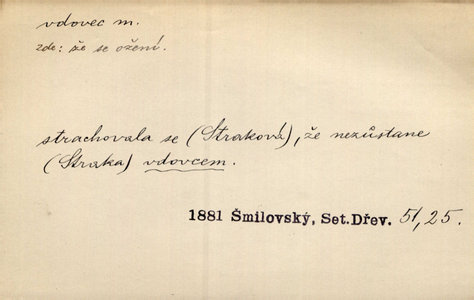 vdovec m.
zde: že se ožení.
strachovala se (Straková), že nezůstane
(Straka) vdovcem.
1881 Šmilovský, Set.Dřev. 51, 25.